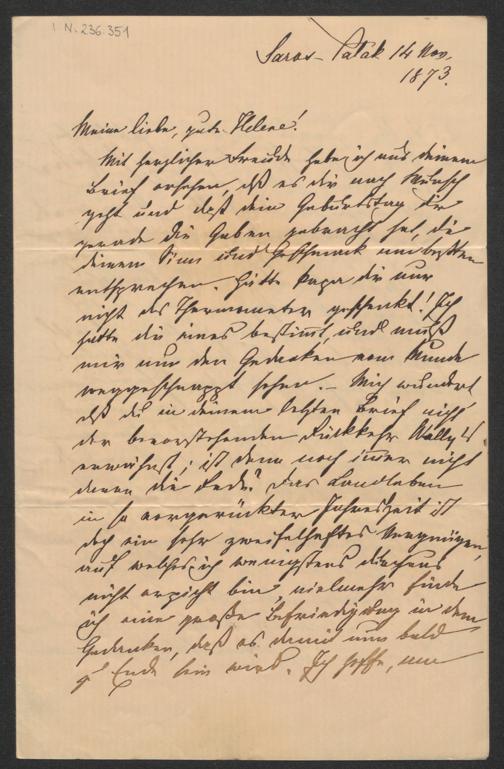 N. 236.351
Saros-Patak 14 Nov.
1873.
Meine liebe, gute Helene!
Mit herzlicher Freude habe ich aus deinem
Brief ersehen, daß es dir nach Wunsch
geht und daß dein Geburtstag dir
gerade die Gaben gebracht hat, die
deinem Sinn und Geschmack am besten
entsprechen. Hätte Papa dir nur
nicht das Thermometer geschenkt! Ich
hatte dir eines bestimmt, und muß
mir nun den Gedanken vom Munde
weggeschnappt sehen. – Mich wundert
daß du in deinem letzten Brief nicht
der bevorstehenden Rückkehr Wally's
erwähnst; ist denn noch immer nicht
davon die Rede? Das Landleben
in so vorgerückter Jahreszeit ist
doch ein sehr zweifelhaftes Vergnügen,
auf welches ich wenigstens durchaus
nicht erpicht bin, vielmehr finde
ich eine große Befriedigung in dem
Gedanken, daß es damit nun bald
zu Ende sein wird. Ich hoffe, um